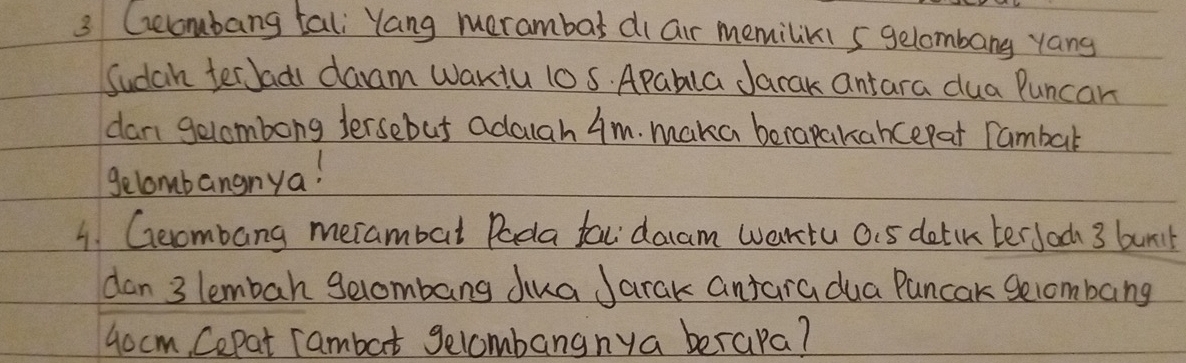 3 Gelombang tali yang merambat di air memiliki 5 gelombang yang
Sudah terjadi dalam waktu 10 s. Apabila Jarak antara dua Puncak
dari gelombang tersebut adalah 4m. maka berapakah cepat rambat
gelombangnya!
4. Gelombang merambat Pada tali dalam waktu 0,5 detik terjadi 3 bukit
dan 3 lembah gelombang Jika Jarak antara dua Puncak gelombang
40cm, Cepat rambat gelombangnya berapa?